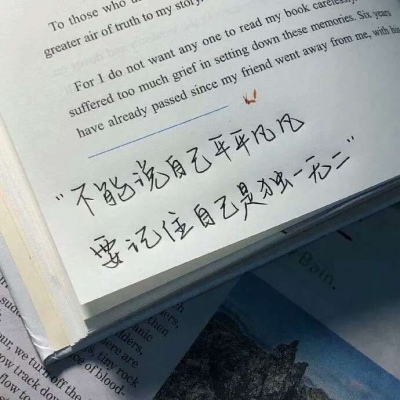 To those who
greater air of truth to my story,
For I do not want any one to read my book carelessly,
suffered too much grief in setting down these memories. Six years
have already passed since my friend went away from me, with his
"不能说自己平平凡凡
要记住自己是独一无二"
Bain.
our, we turn off the
tiny rock
flow to